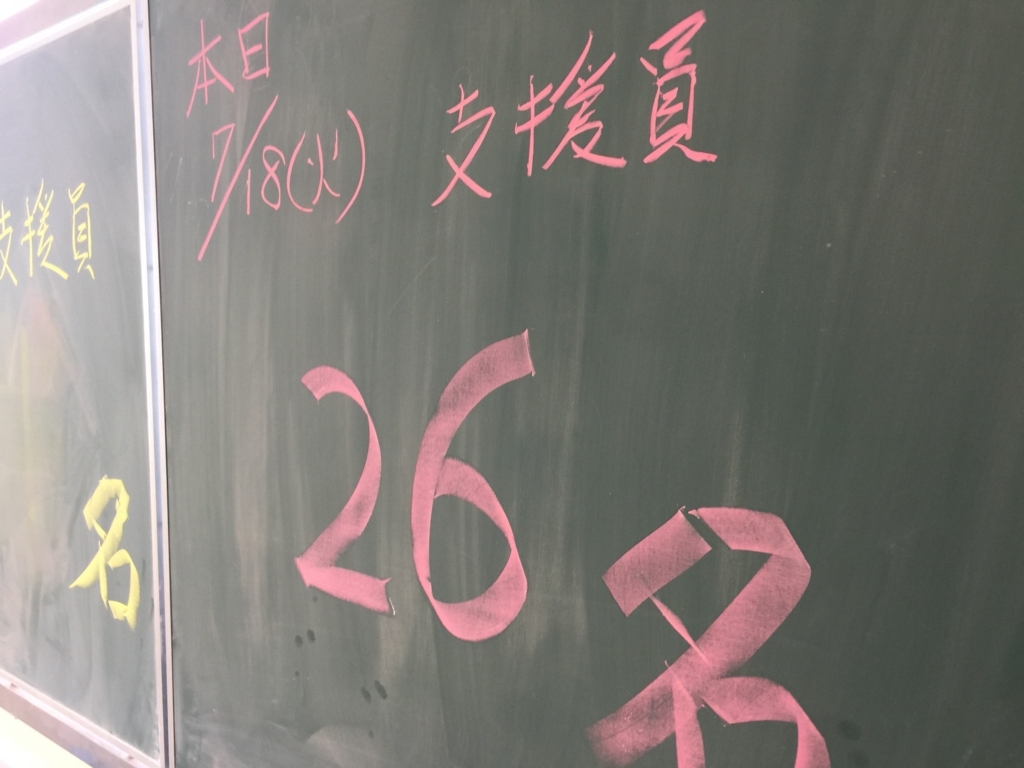 支援員
名
本日
7/18(火)
支援員
26名